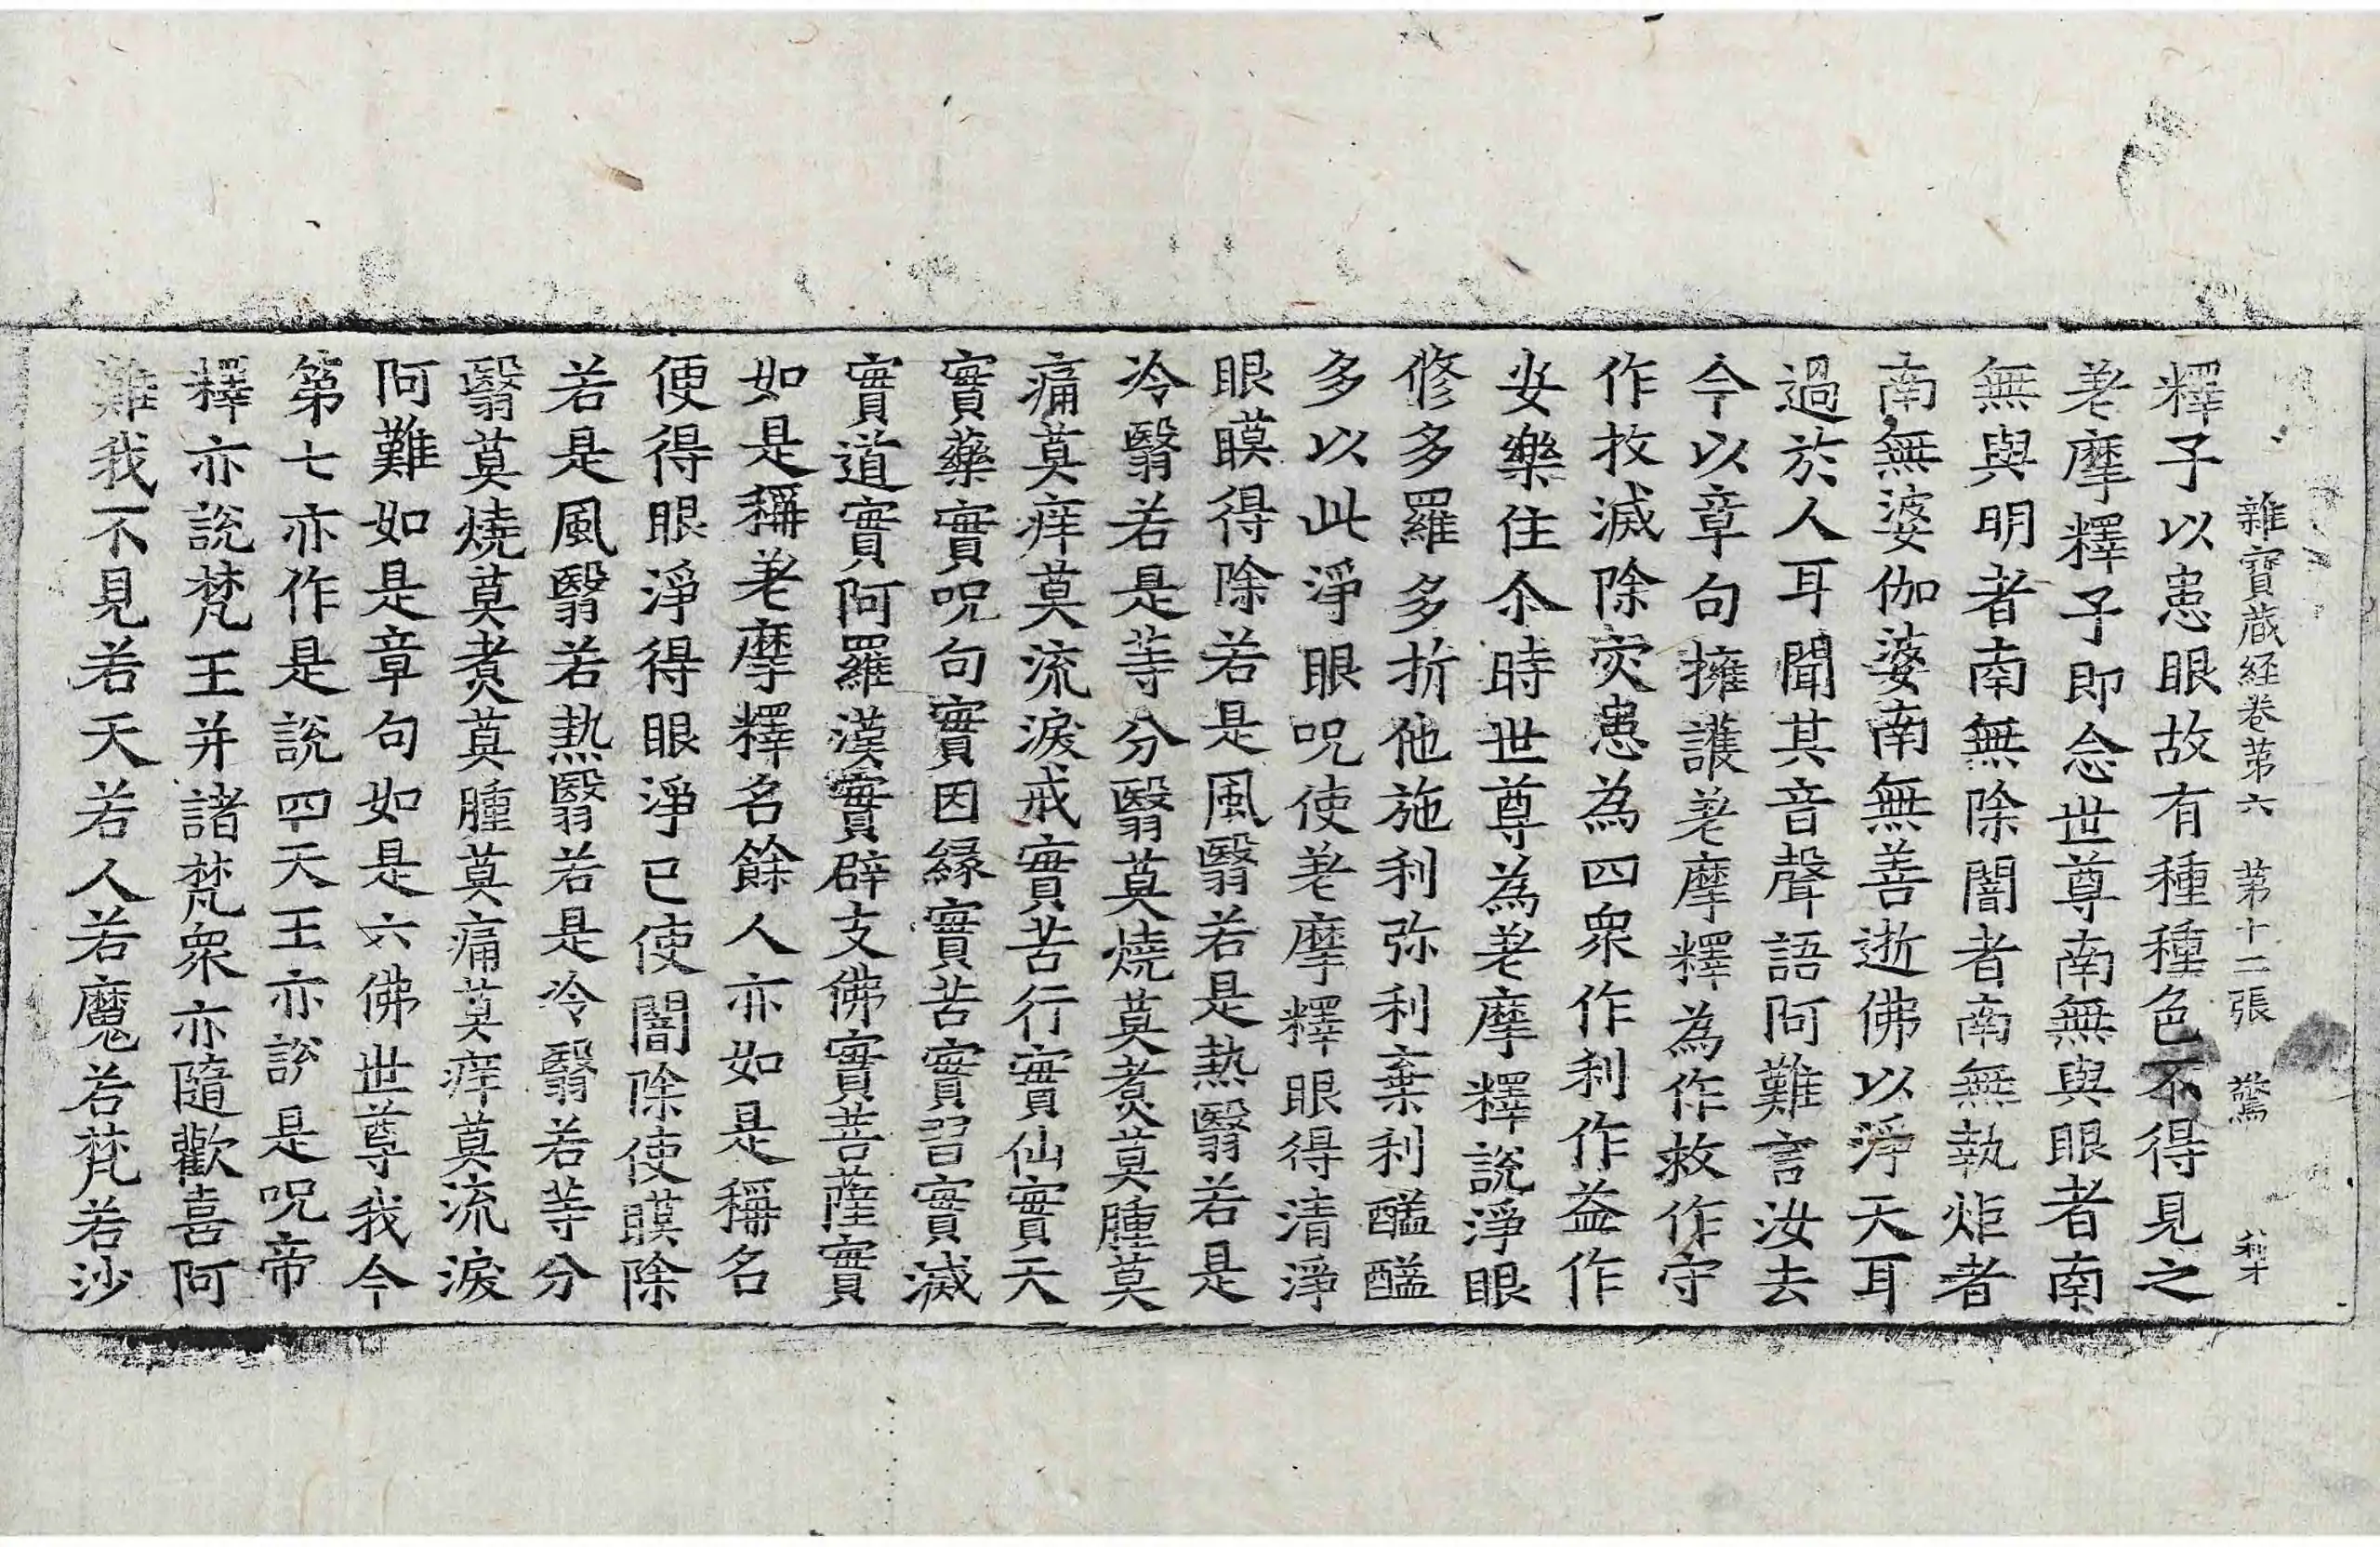 雜寶蔵経卷苐六 苐十二張 驚 利才
釋子以患眼故有種種色不得見之
差摩釋子即念世尊南無與眼者南
無與明者南無除闇者南無執炬者
南無婆伽婆南無善逝佛以淨天耳
過於人耳聞其音聲語阿難言汝去
今以章句擁護差摩釋為作救作守
作抆滅除灾患為四衆作利作益作
安樂住尒時世尊為差摩釋說淨眼
修多羅多折他施利弥利棄利醯醯
多以此淨眼呪使差摩釋眼得清淨
眼瞙得除若是風翳若是熱翳若是
冷翳若是等分翳莫燒莫煮莫腫莫
痛莫痒莫流淚戒實苦行實仙實天
實藥實呪句實因緣實苦實習實滅
實道實阿羅漢實辟支佛實菩薩實
如是稱差摩釋名餘人亦如是稱名
便得眼淨得眼淨已使闇除使瞙除
若是風翳若熱翳若是冷翳若等分
翳莫燒莫煮莫腫莫痛莫痒莫流淚
阿難如是章句如是六佛世尊我今
第七亦作是說四天王亦說是呪帝
釋亦說梵王并諸梵衆亦隨歡喜阿
難我不見若天若人若魔若梵若沙